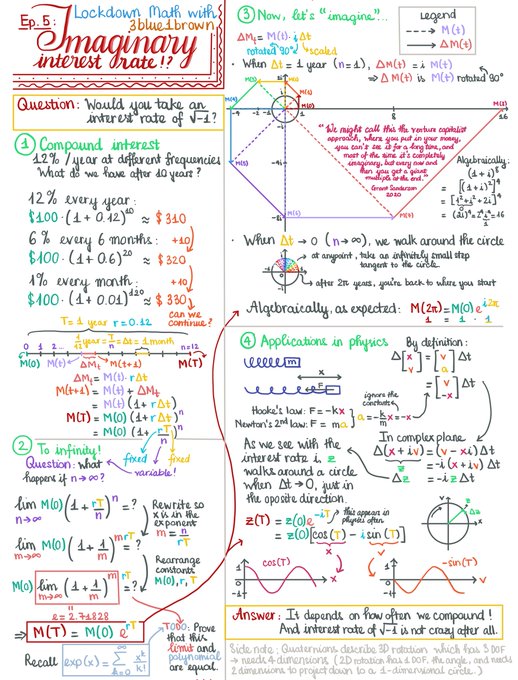 Ep. 5:
Lockdown Math with
3blue1brown
Imaginary
interest rate!?
Question: Would you take an
interest rate of √-1?
① Compound interest
12% /year at different frequencies
What do we have after 10 years?
12% every year:
$100·(1+0.12)¹⁰ ≈ $310
6% every 6 months: +10
$100·(1+0.6)²⁰ ≈ $320
1% every month: +10
$100·(1+0.01)¹²⁰ ≈ $330
can we
continue?
T = 1 year r = 0.12
1/12 year = T/n = Δt = 1 month
0 1 2 ... n=12
M(0) M(t) M(t+1) M(T)
ΔMt
ΔMt = M(t)·rΔt
M(t+1) = M(t) + ΔMt
= M(t)(1+rΔt)
M(T) = M(0)(1+rΔt)ⁿ
= M(0)(1+r T/n)ⁿ
fixed fixed
variable!
② To infinity!
Question: what
happens if n→∞?
lim n→∞ M(0)(1+rT/n)ⁿ = ?
Rewrite so
x is in the
exponent
m = n/rT
lim m→∞ M(0)(1+1/m)^mrT = ?
Rearrange
constants
M(0), r, T
M(0) lim m→∞ (1+1/m)^m rT = ?
e = 2.71828
⇒ M(T) = M(0) e^rT
TODO: Prove
that this
limit and
polynomial
are equal.
Recall exp(x) = ∞ Σ k=0 x^k/k!
③ Now, let's "imagine"...
ΔMt = M(t)·iΔt
rotated 90° scaled
Legend
M(t)
ΔM(t)
· When Δt = 1 year (n=1), ΔM(t) = i M(t)
⇒ ΔM(t) is M(t) rotated 90°
M(3) M(2) M(1) M(0) M(4) M(5) M(6) M(7) M(8)
-4 -2 1 8 16
-4i
-8i
"We might call this the venture capitalist
approach, where you put in your money,
you can't see it for a long time, and
most of the time it's completely
imaginary, but every now and
then you get a giant
multiple at the end."
Grant Sanderson
2020
Algebraically:
(1+i)⁸
= [(1+i)²]⁴
= [1²+i²+2i]⁴
= (2i)⁴=2⁴i⁴=16
· When Δt → 0 (n→∞), we walk around the circle
at any point, take an infinitely small step
tangent to the circle.
after 2π years, you're back to where you start
Algebraically, as expected: M(2π) = M(0) e^i2π
1 = 1 · 1
④ Applications in physics
By definition:
m
F
x
Δ[x v] = [v a] Δt
ignores the
constants
Hooke's law: F = -kx
Newton's 2nd law: F = ma
a = -k/m x = -x
= [v -x] Δt
As we see with the
interest rate i, z
walks around a circle
when Δt→0, just in
the opposite direction.
In complex plane
Δ(x+iv) = (v-xi)Δt
z = -i(x+iv)Δt
Δz = -iz Δt
z(T) = z(0)e^-iT
this appear in
physics often
= z(0)[cos(T) - i sin(T)]
x v
z
Δz
x
v
cos(T)
1
-1
x
-sin(T)
1
-1
v
Answer: It depends on how often we compound!
And interest rate of √-1 is not crazy after all.
Side note: Quaternions describe 3D rotation which has 3 DOF
→ needs 4 dimensions (2D rotation has 1 DOF, the angle, and needs
2 dimensions to project down to a 1-dimensional circle.)